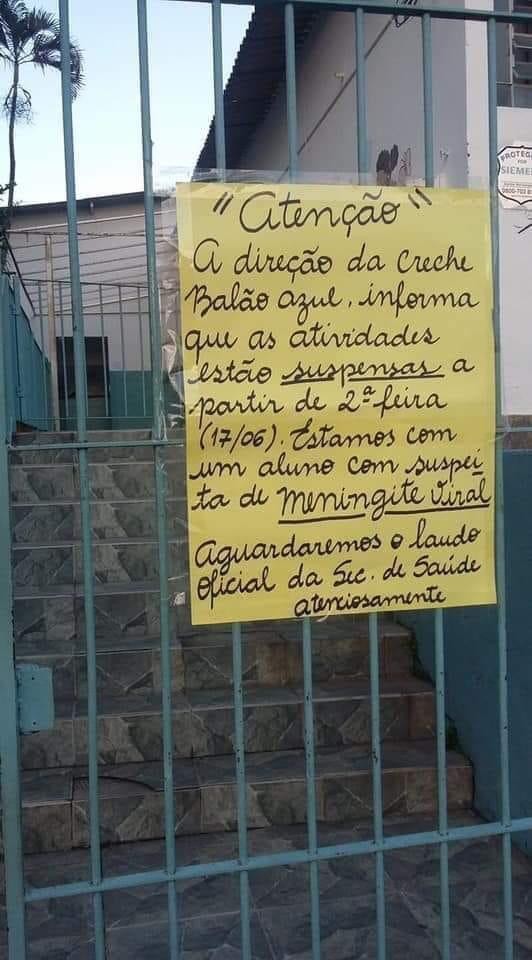 "Atenção"
A direção da creche
Balão azul, informa
que as atividades
estão suspensas a
partir de 2ª feira
(17/06). Estamos com
um aluno com suspei
ta de Meningite Viral
Aguardaremos o laudo
oficial da Sec. de Saúde
atenciosamente
PROTEGI
POR
SIEMEN